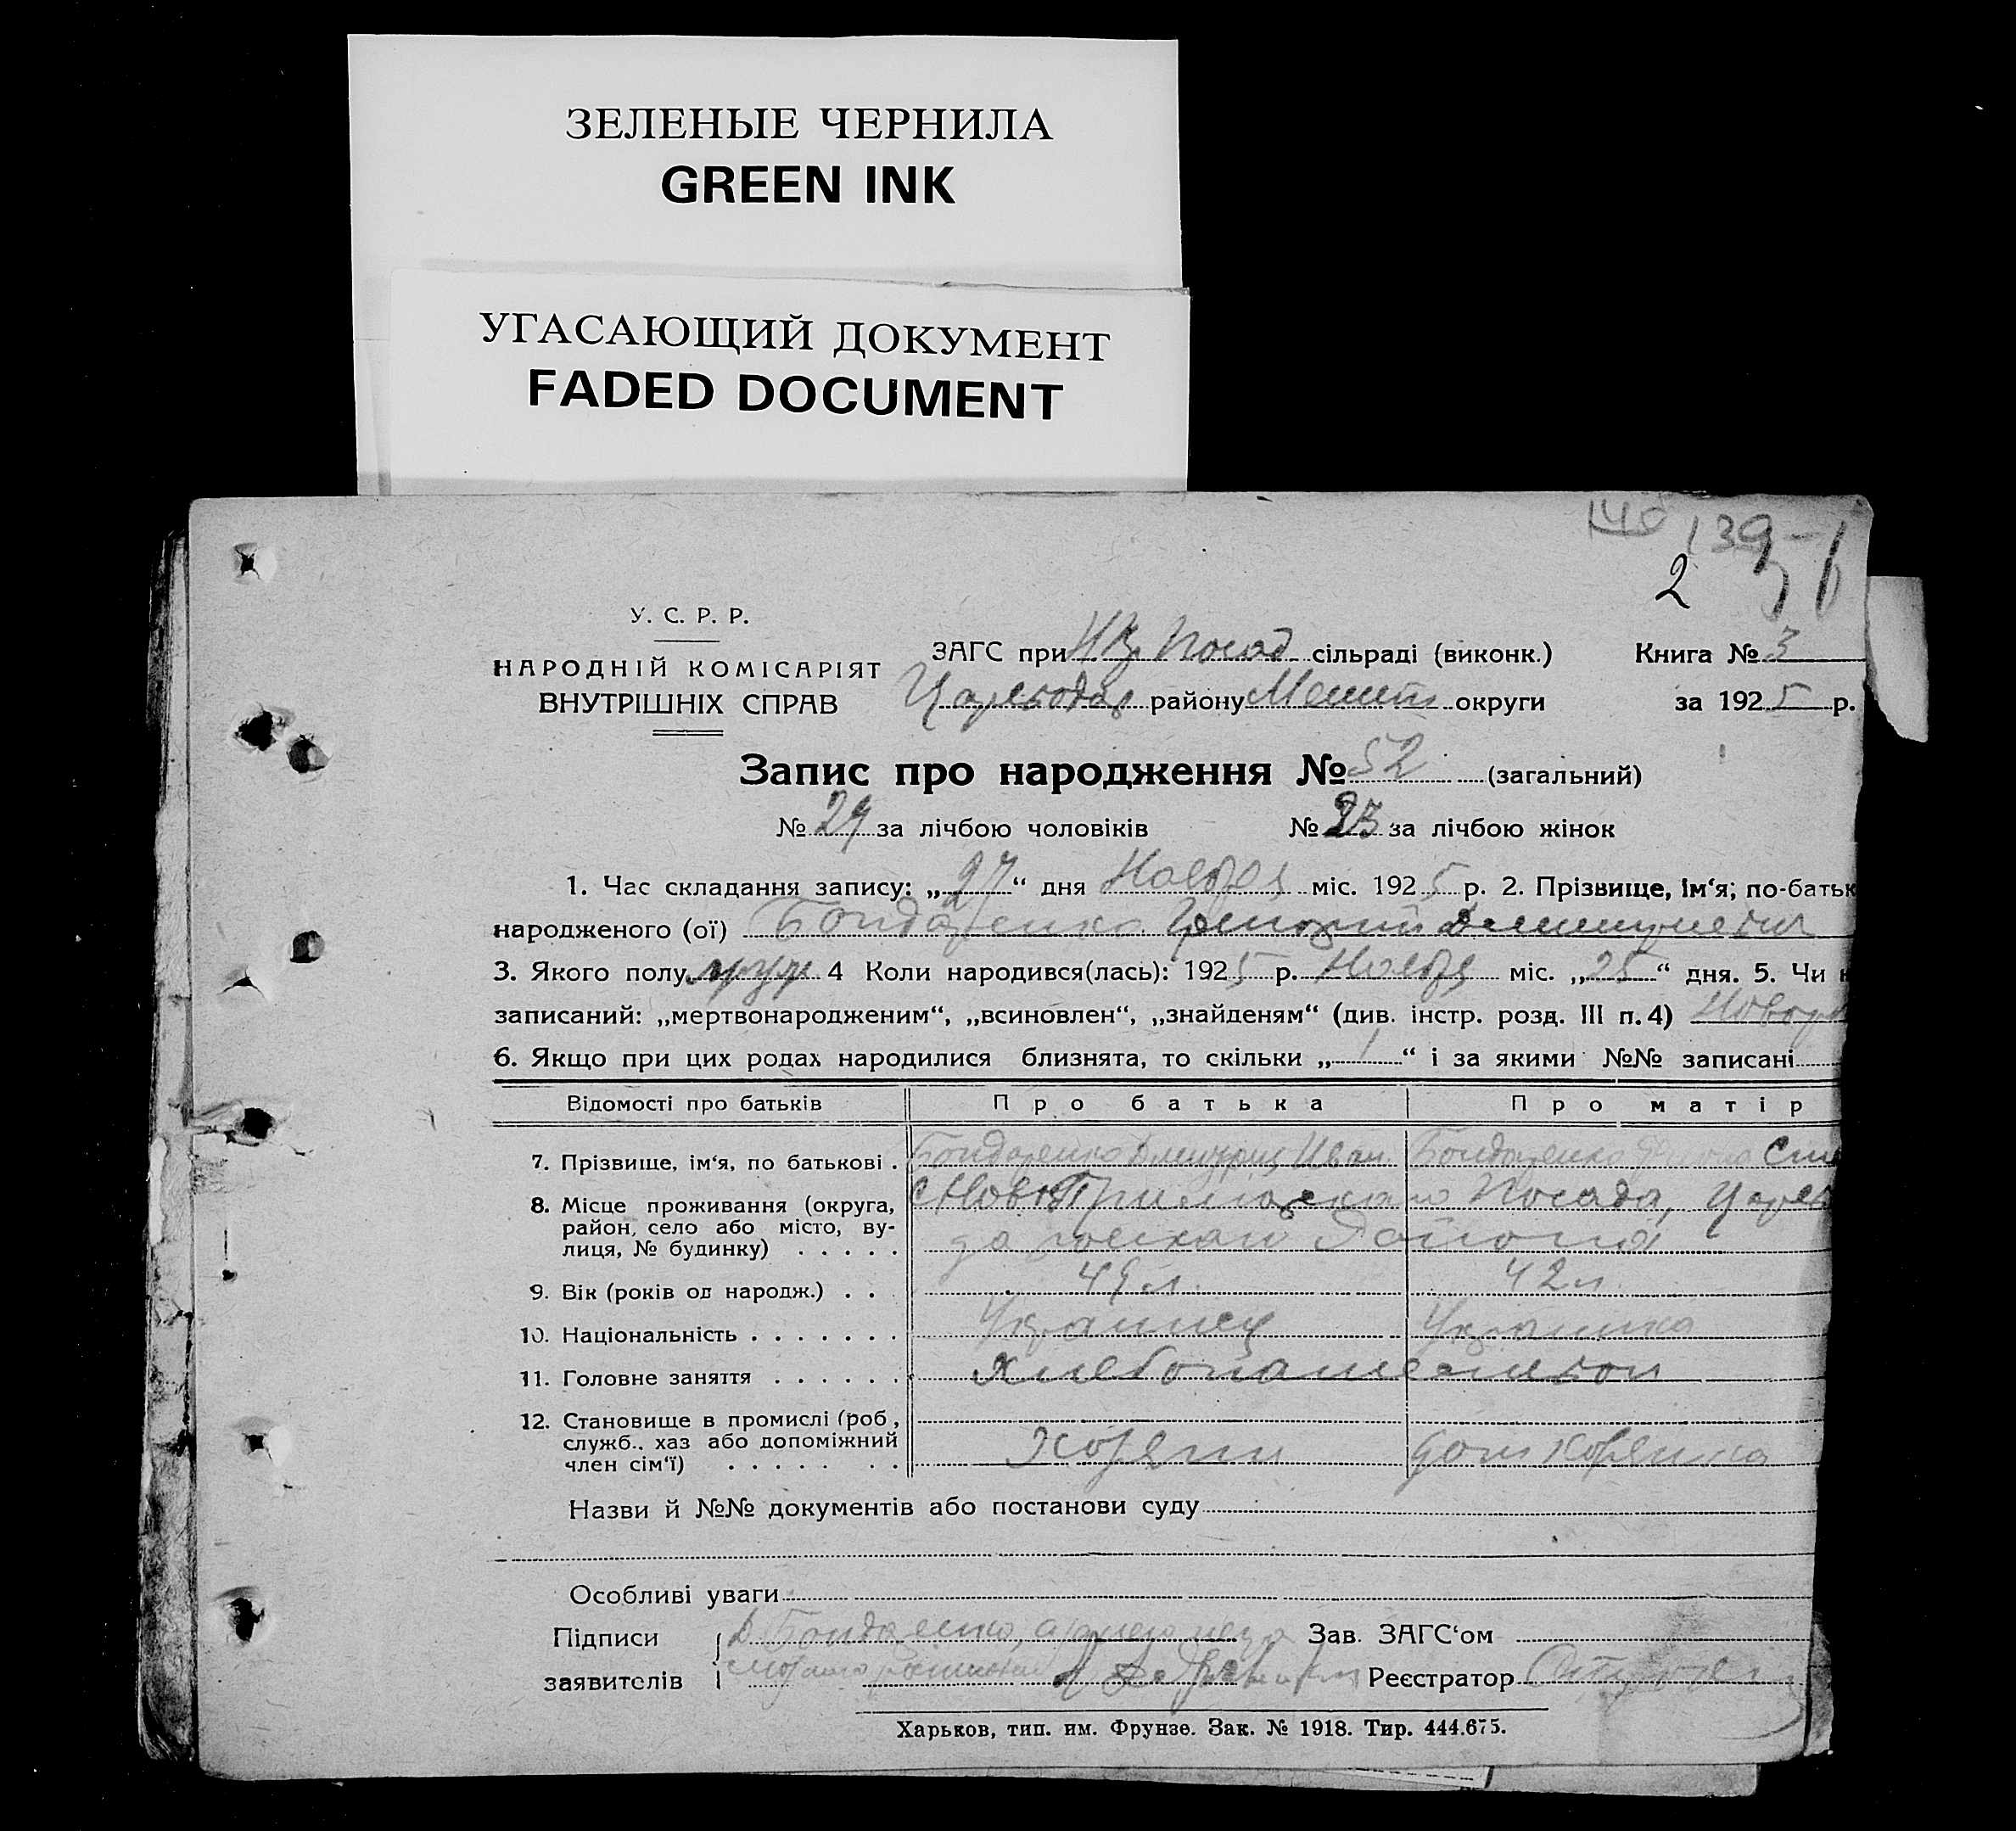 ЗЕЛЕНЫЕ ЧЕРНИЛА
GREEN INK
УГАСАЮЩИЙ ДОКУМЕНТ
FADED DOCUMENT
140 139
2
У. С. Р. Р.
НАРОДНІЙ КОМІСАРІЯТ
ВНУТРІШНІХ СПРАВ
ЗАГС при Посад сільраді (виконк.) Книга № 3
району Мелит округи за 1925 р.
Запис про народження № 52 (загальний)
№ 29 за лічбою чоловіків № 23 за лічбою жінок
1. Час складання запису: „27“ дня Ноября міс. 1925 р. 2. Прізвище, ім‘я; по-батьк
народженого (ої) Бондаренко
3. Якого полу муж 4 Коли народився(лась): 1925 р. Ноября міс. „25“ дня. 5. Чи н
записаний: „мертвонародженим“, „всиновлен“, „знайденям“ (див. інстр. розд. III п. 4) Новор
6. Якщо при цих родах народилися близнята, то скільки „1“ і за якими №№ записані
Відомості про батьків Про батька Про матір
7. Прізвище, ім‘я, по батькові . Бондаренко Дмитрий Иван. Бондаренко
8. Місце проживання (округа, Посада,
район, село або місто, ву-
лиця, № будинку) . . . . . Района
9. Вік (років од народж.) . . 42 л.
10. Національність . . . . . . . Украинец Украинка
11. Головне заняття . . . . . . Хлебопашеством
12. Становище в промислі (роб.,
служб., хаз або допоміжний
член сім‘ї) . . . . . . . Хозяин дом хозяйка
Назви й №№ документів або постанови суду
Особливі уваги
Підписи Д Бондаренко, Зав. ЗАГС‘ом
заявителів Реєстратор
Харьков, тип. им. Фрунзе. Зак. № 1918. Тир. 444.675.